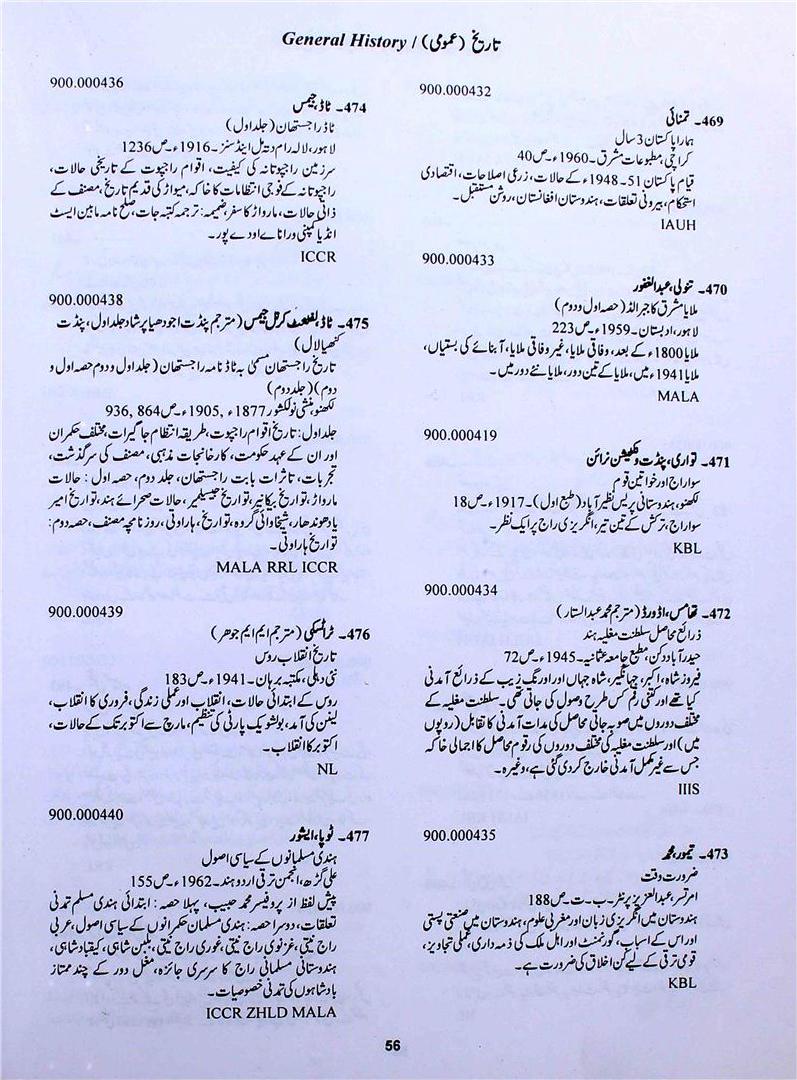 General History / تاریخ (عمومی)
900.000432
469۔ تمنائی
ہمارا پاکستان 3 سال
کراچی، مطبوعات مشرق۔ 1960ء۔ ص 40
قیام پاکستان 51۔1948ء کے حالات، زرعی اصلاحات، اقتصادی
استحکام، بیرونی تعلقات، ہندوستان افغانستان، روشن مستقبل۔
IAUH
900.000433
470۔ تنولی، عبدالغفور
ملایا مشرق کا جبرالڈ (حصہ اول و دوم)
لاہور، ادبستان۔ 1959ء۔ ص 223
ملایا 1800ء کے بعد، وفاقی ملایا، غیر وفاقی ملایا، آبنائے کی بستیاں،
ملایا 1941ء میں، ملایا کے تین دور، ملایا نئے دور میں۔
MALA
900.000419
471۔ تواری، پنڈت وینکٹیش نرائن
سوراج اور خواتین قوم
لکھنو، ہندوستانی پریس نظیر آباد (طبع اول)۔ 1917ء۔ ص 18
سوراج، ترکش کے تین تیر، انگریزی راج پر ایک نظر۔
KBL
900.000434
472۔ تھامس، اڈورڈ (مترجم محمد عبدالستار)
ذرائع محاصل سلطنت مغلیہ ہند
حیدرآباد دکن، مطبع جامعہ عثمانیہ۔ 1945ء۔ ص 72
فیروز شاہ، اکبر، جہانگیر، شاہ جہاں اور اورنگ زیب کے ذرائع آمدنی
کیا تھے اور کتنی رقم کس طرح وصول کی جاتی تھی۔ سلطنت مغلیہ کے
مختلف دوروں میں صوبہ جاتی محاصل کی مدات آمدنی کا تقابل (روپوں
میں) اور سلطنت مغلیہ کی مختلف دوروں کی رقوم محاصل کا اجمالی خاکہ
جس سے غیر مکمل آمدنی خارج کر دی گئی ہے، وغیرہ۔
IIIS
900.000435
473۔ تیمور، محمد
ضرورت وقت
امرتسر، عبدالعزیز پرنٹر۔ ب۔ت۔ ص 188
ہندوستان میں انگریزی زبان اور مغربی علوم، ہندوستان میں صنعتی پستی
اور اس کے اسباب، گورنمنٹ اور اہل ملک کی ذمہ داری، عملی تجاویز،
قومی ترقی کے لیے کن اخلاق کی ضرورت ہے۔
KBL
900.000436
474۔ ٹاڈ، جیمس
ٹاڈ راجستھان (جلد اول)
لاہور، لالہ رام دتہ مل اینڈ سنز۔ 1916ء۔ ص 1236
سرزمین راجپوتانہ کی کیفیت، اقوام راجپوت کے تاریخی حالات،
راجپوتانہ کے فوجی انتظامات کا خاکہ، میواڑ کی قدیم تاریخ، مصنف کے
ذاتی حالات، مارواڑ کا سفر، ضمیمہ: ترجمہ کتبہ جات، صلح نامہ مابین ایسٹ
انڈیا کمپنی و رانا ے اودے پور۔
ICCR
900.000438
475۔ ٹاڈ، لفٹننٹ کرنل جیمس (مترجم پنڈت اجودھیا پرشاد جلد اول، پنڈت
کنھیا لال)
تاریخ راجستھان مسمٰی بہ ٹاڈ نامہ راجستھان (جلد اول و دوم حصہ اول و
دوم) (جلد دوم)
لکھنو، منشی نولکشور 1877ء، 1905ء۔ ص 864, 936
جلد اول: تاریخ اقوام راجپوت، طریقہ انتظام جاگیرات، مختلف حکمران
اور ان کے عہد حکومت، کارخانجات مذہبی، مصنف کی سرگذشت،
تجربات، تاثرات بابت راجستھان، جلد دوم، حصہ اول: حالات
مارواڑ، تواریخ بیکانیر، تواریخ جیسلمیر، حالات صحرائے ہند، تواریخ امیر
یا دھوندھار، شیخاواٹی گروہ، تواریخ، ہاراوتی، روزنامچہ مصنف، حصہ دوم:
تواریخ ہاراوتی۔
MALA RRL ICCR
900.000439
476۔ ٹراٹسکی (مترجم ایم ایم جوہر)
تاریخ انقلاب روس
نئی دہلی، مکتبہ برہان۔ 1941ء۔ ص 183
روس کے ابتدائی حالات، انقلاب اور عملی زندگی، فروری کا انقلاب،
لینن کی آمد، بولشویک پارٹی کی تنظیم، مارچ سے اکتوبر تک کے حالات،
اکتوبر کا انقلاب۔
NL
900.000440
477۔ ٹوپا، ایشور
ہندی مسلمانوں کے سیاسی اصول
علی گڑھ، انجمن ترقی اردو ہند۔ 1962ء۔ ص 155
پیش لفظ از پروفیسر محمد حبیب، پہلا حصہ: ابتدائی ہندی مسلم تمدنی
تعلقات، دوسرا حصہ: ہندی مسلمان حکمرانوں کے سیاسی اصول، عربی
راج نیتی، غزنوی راج نیتی، غوری راج نیتی، بلبن شاہی، کیقباد شاہی،
ہندوستانی مسلمانی راج کا سرسری جائزہ، مغل دور کے چند ممتاز
بادشاہوں کی تمدنی خصوصیات۔
ICCR ZHLD MALA
56